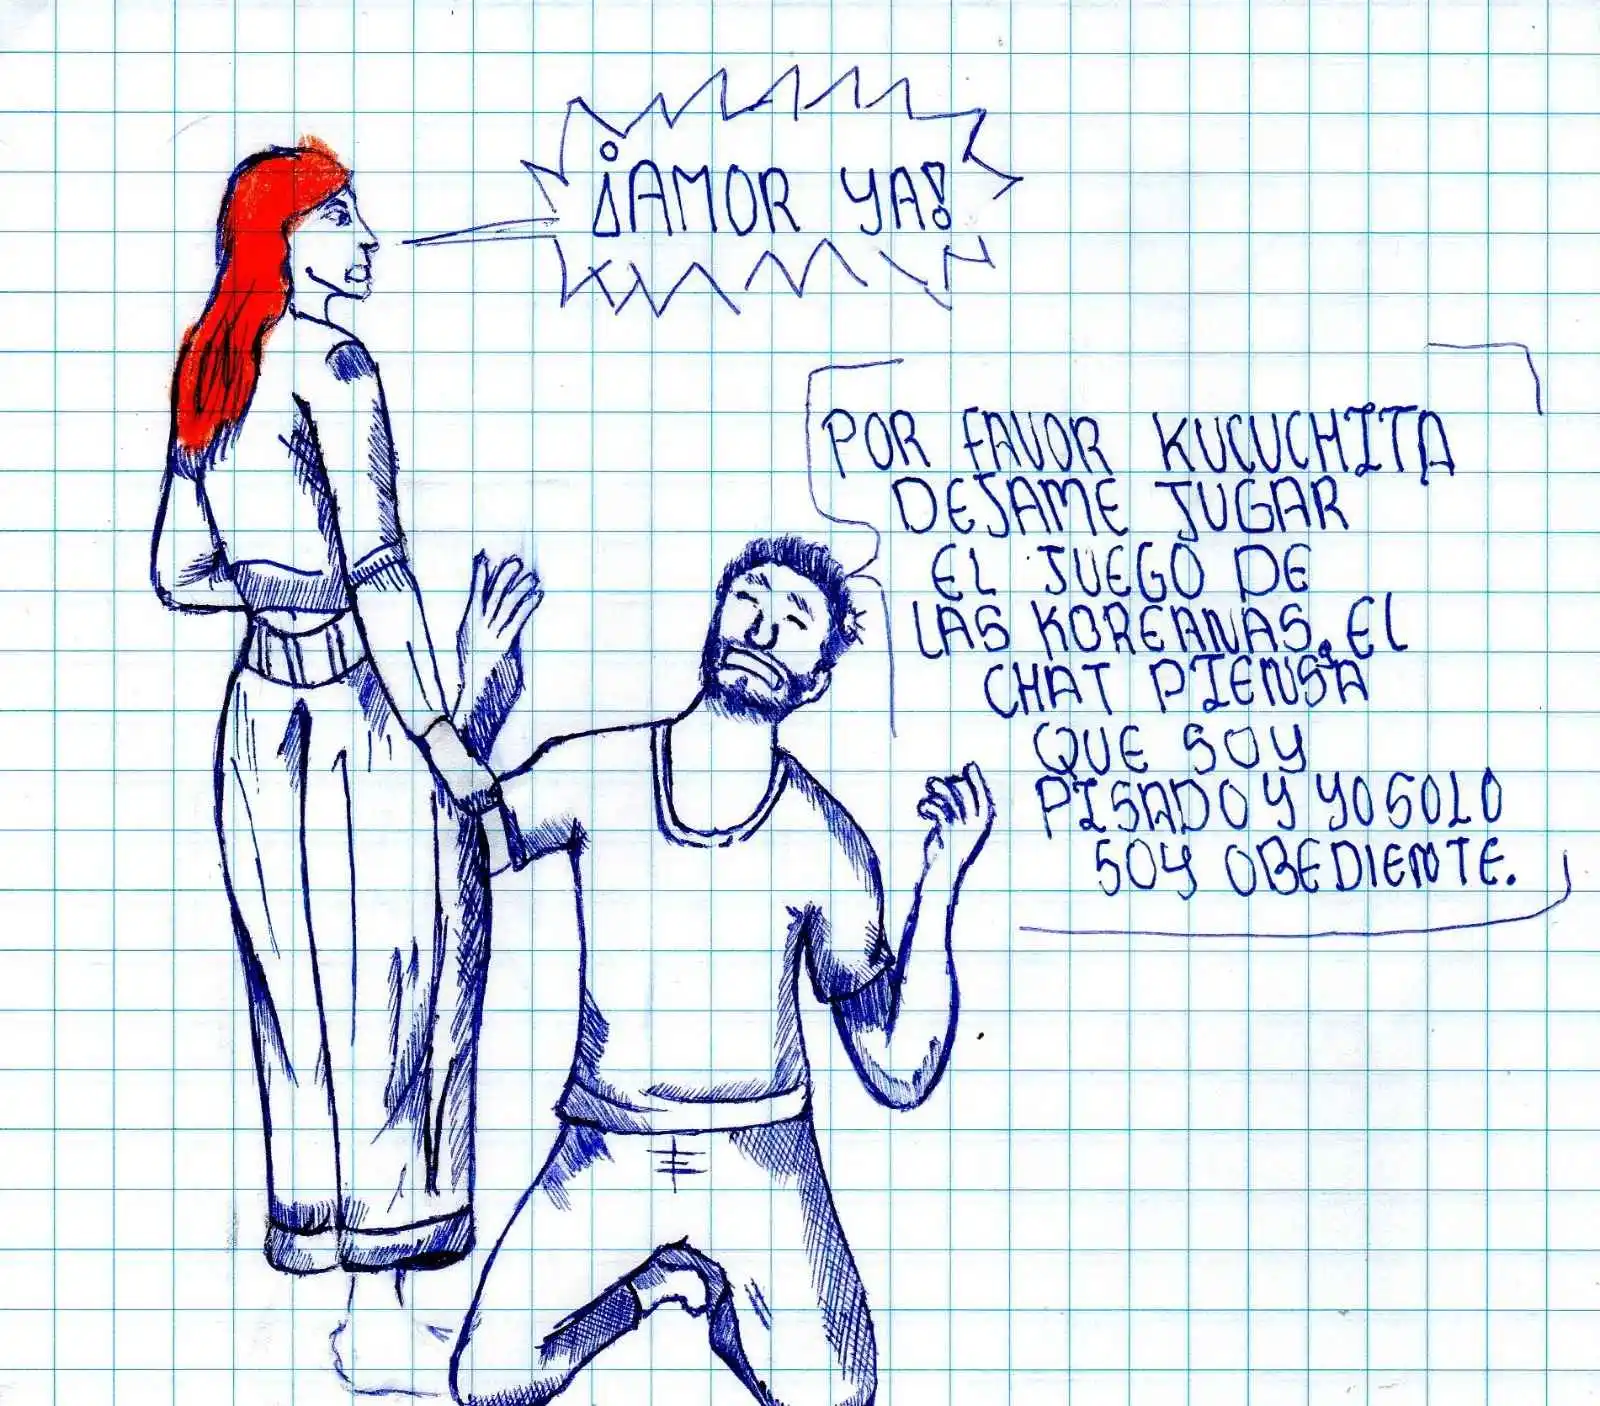 ¡AMOR YA!
POR FAVOR KUCUCHITA
DEJAME JUGAR
EL JUEGO DE
LAS KOREANAS. EL
CHAT PIENSA
QUE SOY
PISADO Y YO SOLO
SOY OBEDIENTE.